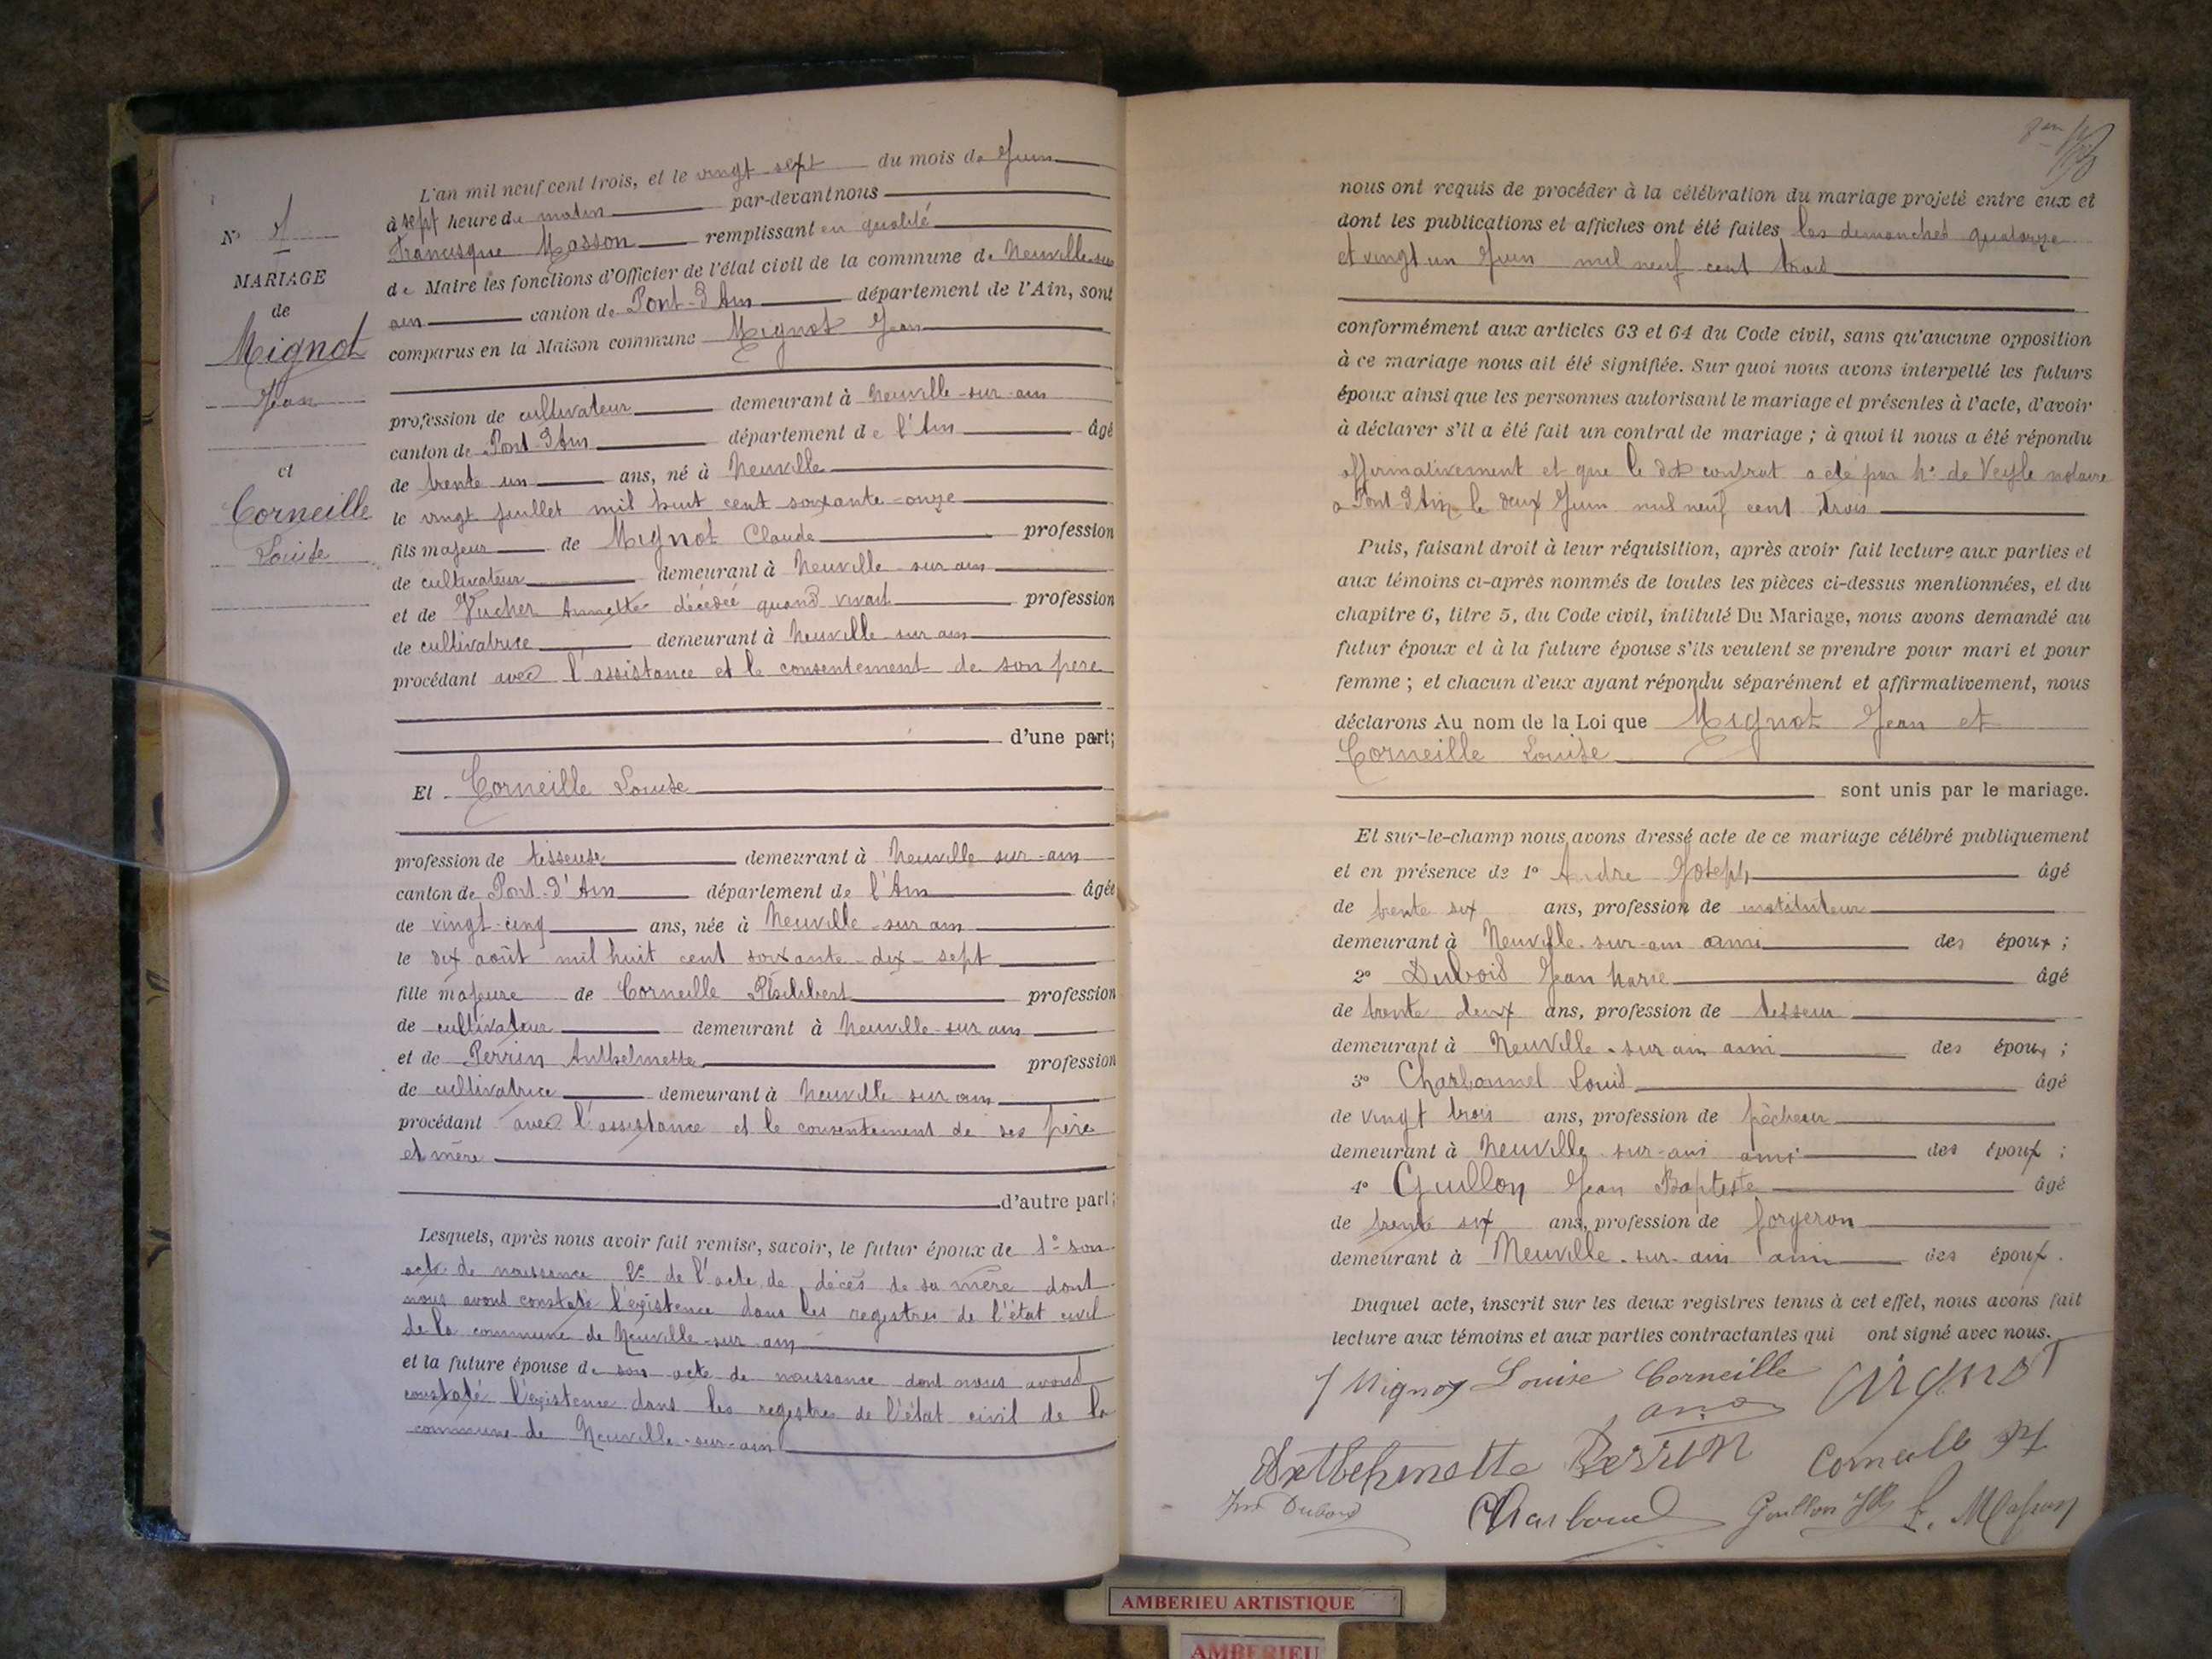 L'an mil neuf cent trois, et le vingt sept du mois de Juin
à sept heure du matin par-devant nous
Francisque Masson remplissant en qualité
de Maire les fonctions d'Officier de l'état civil de la commune de Neuville-sur
ain canton de Pont-d'Ain département de l'Ain, sont
comparus en la Maison commune Mignot Jean
N°
MARIAGE
de
Mignot
Jean
et
Corneille
Louise
profession de cultivateur demeurant à Neuville-sur-ain
canton de Pont-d'Ain département de l'Ain âgé
de trente un ans, né à Neuville
le vingt juillet mil huit cent soixante-onze
fils majeur de Mignot Claude profession
de cultivateur demeurant à Neuville sur ain
et de Vucher Annette décédée quand vivait profession
de cultivatrice demeurant à Neuville sur ain
procédant avec l'assistance et le consentement de son père
d'une part;
Et Corneille Louise
profession de tisseuse demeurant à Neuville sur-ain
canton de Pont-d'Ain département de l'Ain âgée
de vingt-cinq ans, née à Neuville-sur ain
le dix août mil huit cent soixante-dix-sept
fille majeure de Corneille profession
de cultivateur demeurant à Neuville-sur ain
et de Perrin Anthelmette profession
de cultivatrice demeurant à Neuville sur ain
procédant avec l'assistance et le consentement de ses père
et mère
d'autre part;
Lesquels, après nous avoir fait remise, savoir, le futur époux de 1° son
acte de naissance 2° de l'acte de décès de sa mère dont
nous avons constaté l'existence dans les registres de l'état civil
de la commune de Neuville-sur-ain
et la future épouse de son acte de naissance dont nous avons
constaté l'existence dans les registres de l'état civil de la
commune de Neuville-sur-ain
nous ont requis de procéder à la célébration du mariage projeté entre eux et
dont les publications et affiches ont été faites les dimanches quatorze
et vingt un Juin mil neuf cent trois
conformément aux articles 63 et 64 du Code civil, sans qu'aucune opposition
à ce mariage nous ait été signifiée. Sur quoi nous avons interpellé les futurs
époux ainsi que les personnes autorisant le mariage et présentes à l'acte, d'avoir
à déclarer s'il a été fait un contrat de mariage ; à quoi il nous a été répondu
affirmativement et que le dit contrat a été par Me de Veyle notaire
à Pont d'Ain le deux Juin mil neuf cent trois
Puis, faisant droit à leur réquisition, après avoir fait lecture aux parties et
aux témoins ci-après nommés de toutes les pièces ci-dessus mentionnées, et du
chapitre 6, titre 5, du Code civil, intitulé Du Mariage, nous avons demandé au
futur époux et à la future épouse s'ils veulent se prendre pour mari et pour
femme ; et chacun d'eux ayant répondu séparément et affirmativement, nous
déclarons Au nom de la Loi que Mignot Jean et
Corneille Louise
sont unis par le mariage.
Et sur-le-champ nous avons dressé acte de ce mariage célébré publiquement
et en présence de 1° Andre Joseph âgé
de trente six ans, profession de instituteur
demeurant à Neuville-sur-ain ami des époux ;
2° Dubois Jean Marie âgé
de trente deux ans, profession de tisseur
demeurant à Neuville-sur ain ami des époux ;
3° Charbonnel Louis âgé
de vingt trois ans, profession de pêcheur
demeurant à Neuville sur-ain ami des époux ;
4° Guillon Jean Baptiste âgé
de trente six ans, profession de forgeron
demeurant à Neuville-sur-ain ami des époux.
Duquel acte, inscrit sur les deux registres tenus à cet effet, nous avons fait
lecture aux témoins et aux parties contractantes qui ont signé avec nous.
J Mignot Louise Corneille Mignot
Anthelmette Perrin
Dubois Guillon JB F. Masson
AMBERIEU ARTISTIQUE
AMBERIEU